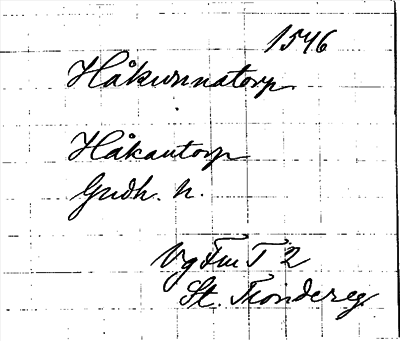 1546
Håkunnatorp
Håkantorp
Gudh. n.
Vg Fm T 2
St. Tiondereg